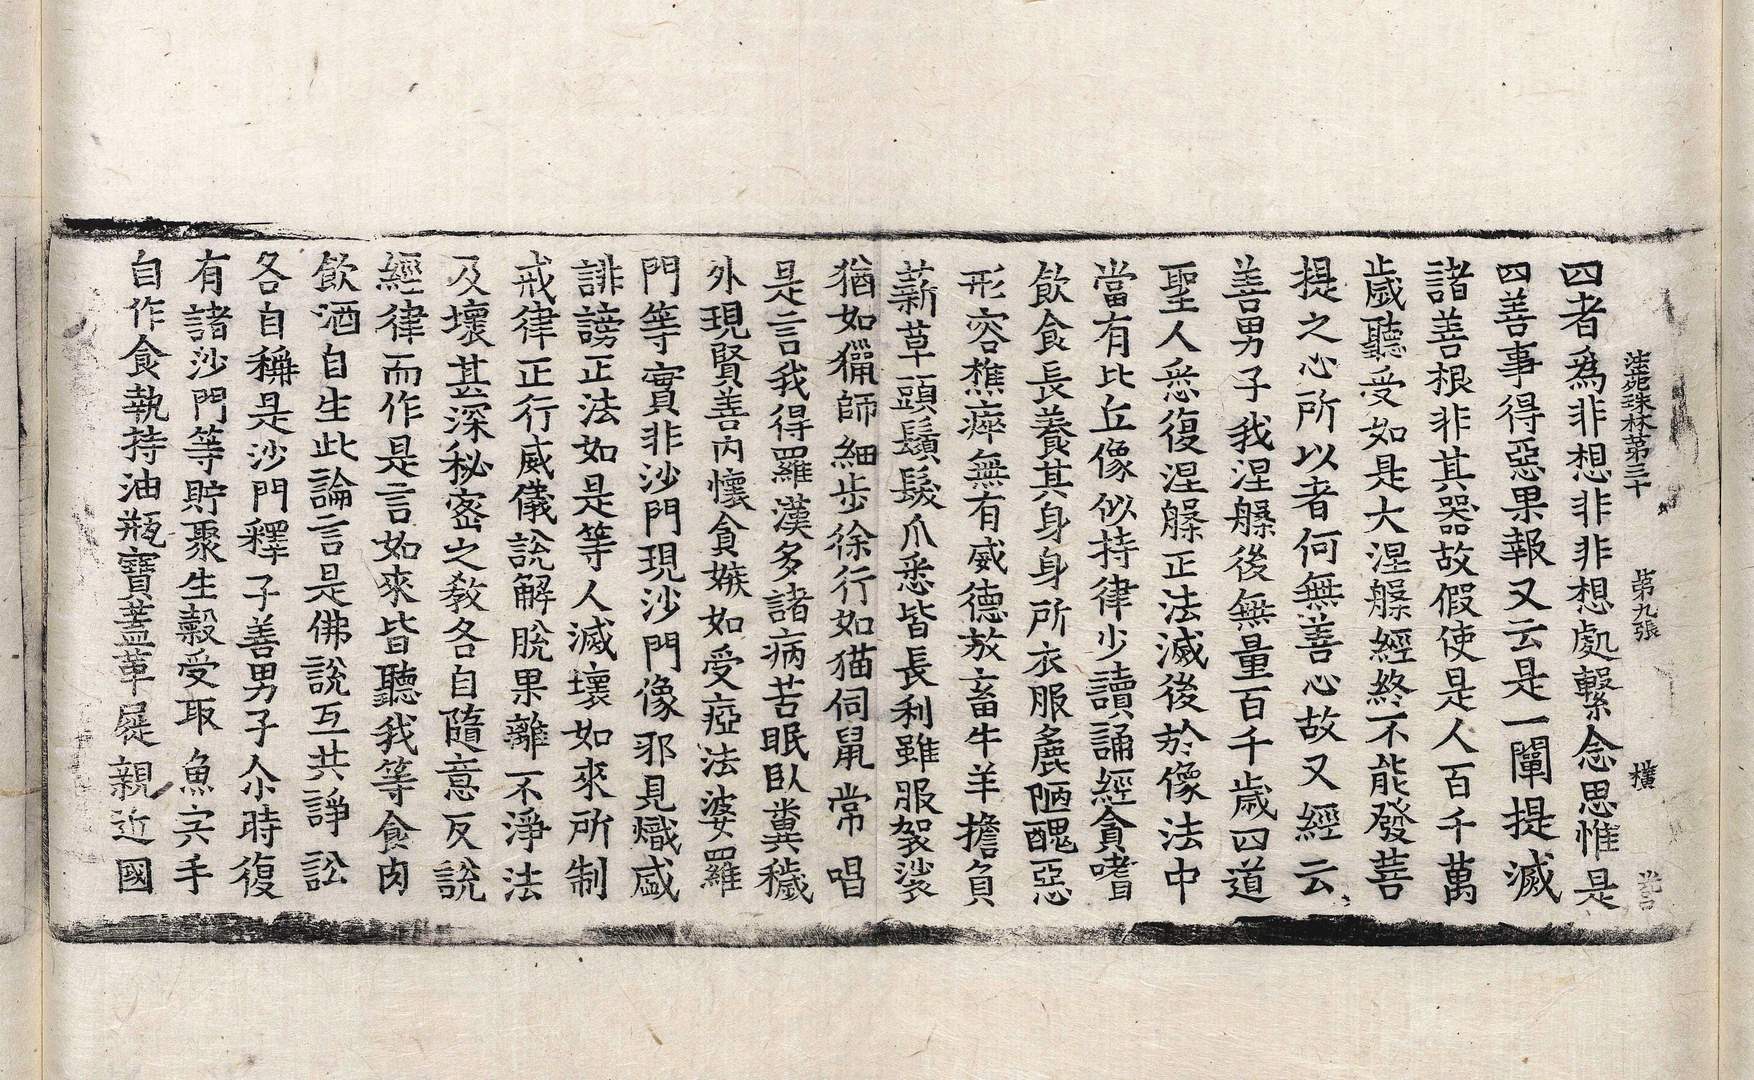 法苑珠林第三十　第九張　橫
四者爲非想非非想處繫念思惟是
四善事得惡果報又云是一闡提滅
諸善根非其器故假使是人百千萬
歲聽受如是大涅槃經終不能發菩
提之心所以者何無善心故又經云
善男子我涅槃後無量百千歲四道
聖人悉復涅槃正法滅後於像法中
當有比丘像似持律少讀誦經貪嗜
飲食長養其身身所衣服麁陋醜惡
形容憔瘁無有威德放畜牛羊擔負
薪草頭鬚髮爪悉皆長利雖服袈裟
猶如獵師細步徐行如猫伺鼠常唱
是言我得羅漢多諸病苦眠臥糞穢
外現賢善內懷貪嫉如受瘂法婆羅
門等實非沙門現沙門像邪見熾盛
誹謗正法如是等人滅壞如來所制
戒律正行威儀說解脫果離不淨法
及壞甚深秘密之教各自隨意反說
經律而作是言如來皆聽我等食肉
飲酒自生此論言是佛說互共諍訟
各自稱是沙門釋子善男子尒時復
有諸沙門等貯聚生穀受取魚宍手
自作食執持油瓶寶蓋革屣親近國